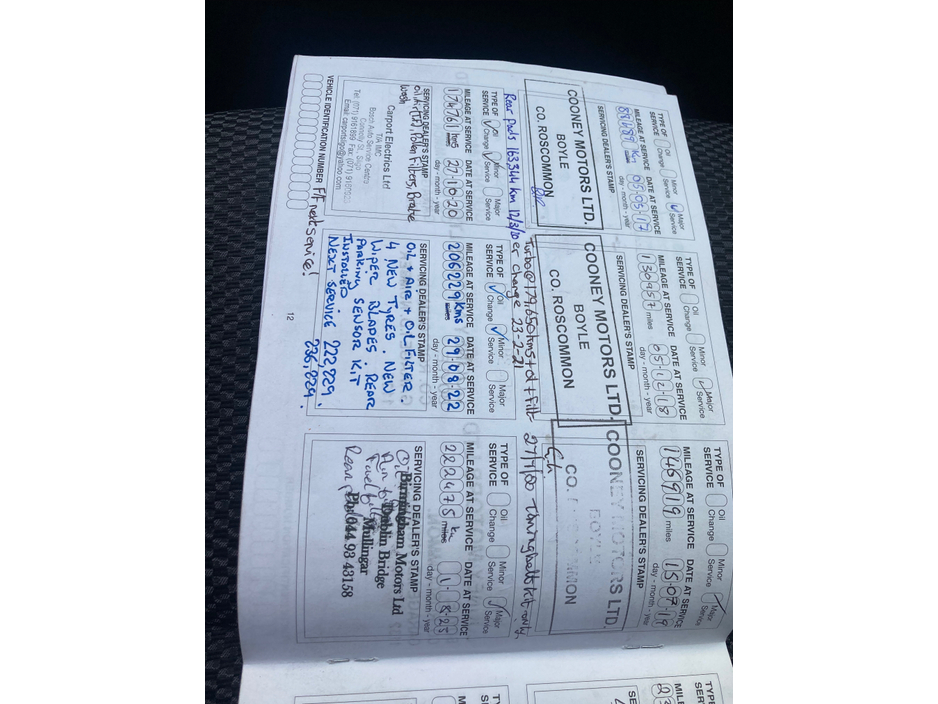 TYPE OF SERVICE Oil Change Minor Service Major Service
MILEAGE AT SERVICE DATE AT SERVICE
Km 05 05 17
day - month - year
SERVICING DEALER'S STAMP
COONEY MOTORS LTD.
BOYLE
CO. ROSCOMMON
TYPE OF SERVICE Oil Change Minor Service Major Service
MILEAGE AT SERVICE DATE AT SERVICE
130957 miles 05 12 18
day - month - year
SERVICING DEALER'S STAMP
COONEY MOTORS LTD.
BOYLE
CO. ROSCOMMON
TYPE OF SERVICE Oil Change Minor Service Major Service
MILEAGE AT SERVICE DATE AT SERVICE
146919 miles 15 07 19
day - month - year
SERVICING DEALER'S STAMP
COONEY MOTORS LTD.
BOYLE
Rear pads 163344 km
Turbo @ 179,650 kms + oil + filt
er change 23-2-21
Timing belt kit only.
TYPE OF SERVICE Oil Change Minor Service Major Service
MILEAGE AT SERVICE DATE AT SERVICE
174761 kms 27 10 20
day - month - year
SERVICING DEALER'S STAMP
Pollen Filters, Brake
wash
Carport Electrics Ltd
T/A IMC
Bosch Auto Service Centre
Connolly St, Sligo
Tel: (071) 9161899 Fax: (071)
Email: carportsligo@yahoo.com
TYPE OF SERVICE Oil Change Minor Service Major Service
MILEAGE AT SERVICE DATE AT SERVICE
206229 kms 29.08.22
day - month - year
SERVICING DEALER'S STAMP
OIL + AIR + OIL FILTER.
4 NEW TYRES. NEW
WIPER BLADES. REAR
PARKING SENSOR KIT
INSTALLED
NEXT SERVICE 222,229
236,229.
TYPE OF SERVICE Oil Change Minor Service Major Service
MILEAGE AT SERVICE DATE AT SERVICE
miles 1 8 25
day - month - year
SERVICING DEALER'S STAMP
Birmingham Motors Ltd
Dublin Bridge
Mullingar
Ph: 044 93 43158
VEHICLE IDENTIFICATION NUMBER F/F next service!
12